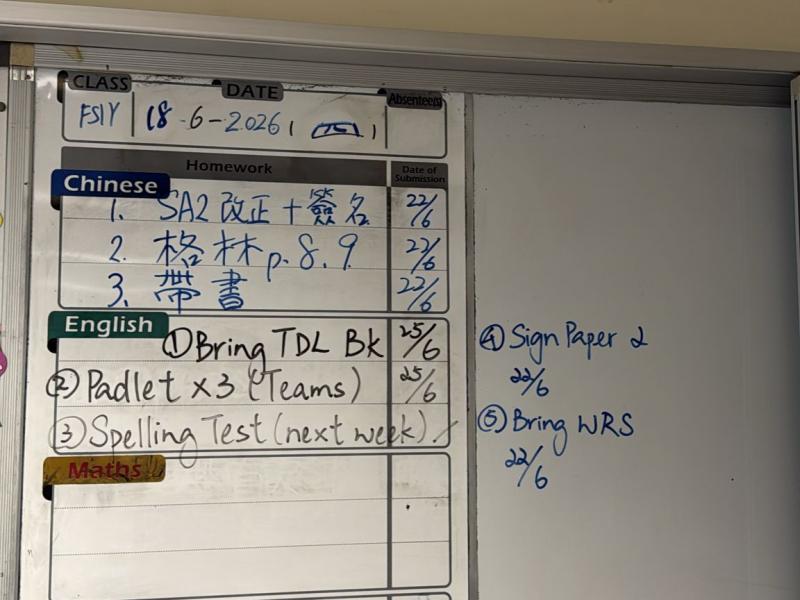 CLASS DATE Absentees
FS1Y 18-6-2026 (四)
Homework Date of Submission
Chinese
1. SA2 改正+簽名 22/6
2. 格林 p.8,9 22/6
3. 帶書 22/6
English
① Bring TDL Bk 25/6
② Padlet x3 (Teams) 25/6
③ Spelling Test (next week)
Maths
④ Sign Paper 2
22/6
⑤ Bring WRS
22/6